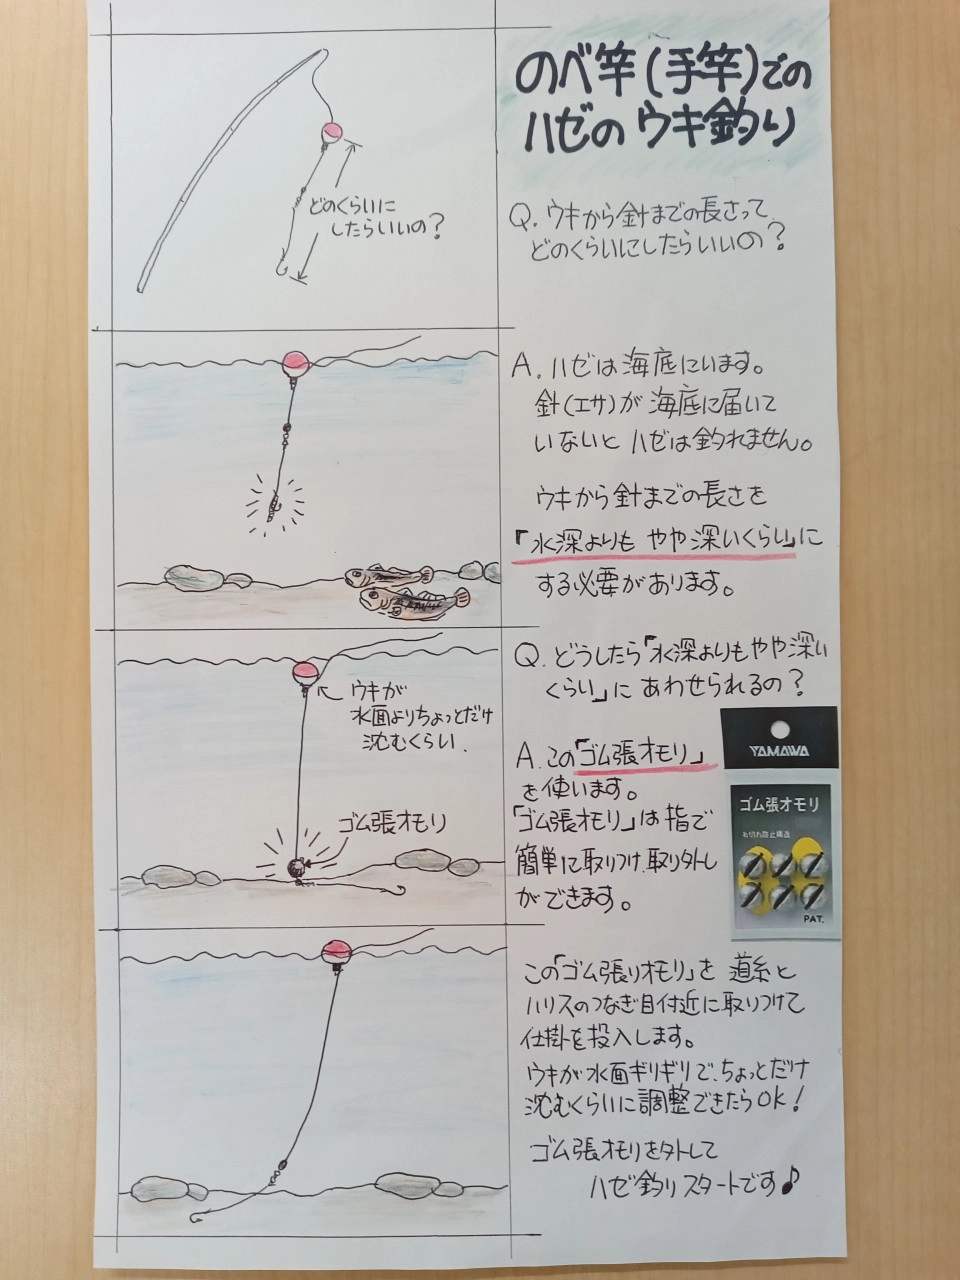 のべ竿(手竿)での
ハゼの ウキ釣り
どのくらいに
したらいいの?
Q. ウキから針までの長さって
どのくらいにしたらいいの?
A. ハゼは海底にいます。
針(エサ)が 海底に届いて
いないと ハゼは釣れません。
ウキから針までの長さを
「水深よりも やや深いくらい」に
する必要があります。
ウキが
水面よりちょっとだけ
沈むくらい.
ゴム張オモリ
Q. どうしたら「水深よりもやや深い
くらい」に あわせられるの?
A. この「ゴム張オモリ」
を使います。
「ゴム張オモリ」は 指で
簡単に取りつけ、取り外し
ができます。
YAMAWA
ゴム張オモリ
糸切れ防止構造
PAT.
この「ゴム張りオモリ」を 道糸と
ハリスのつなぎ目付近に取りつけて
仕掛を投入します。
ウキが水面ギリギリで、ちょっとだけ
沈むくらいに調整できたらOK!
ゴム張オモリを外して
ハゼ釣りスタートです♪